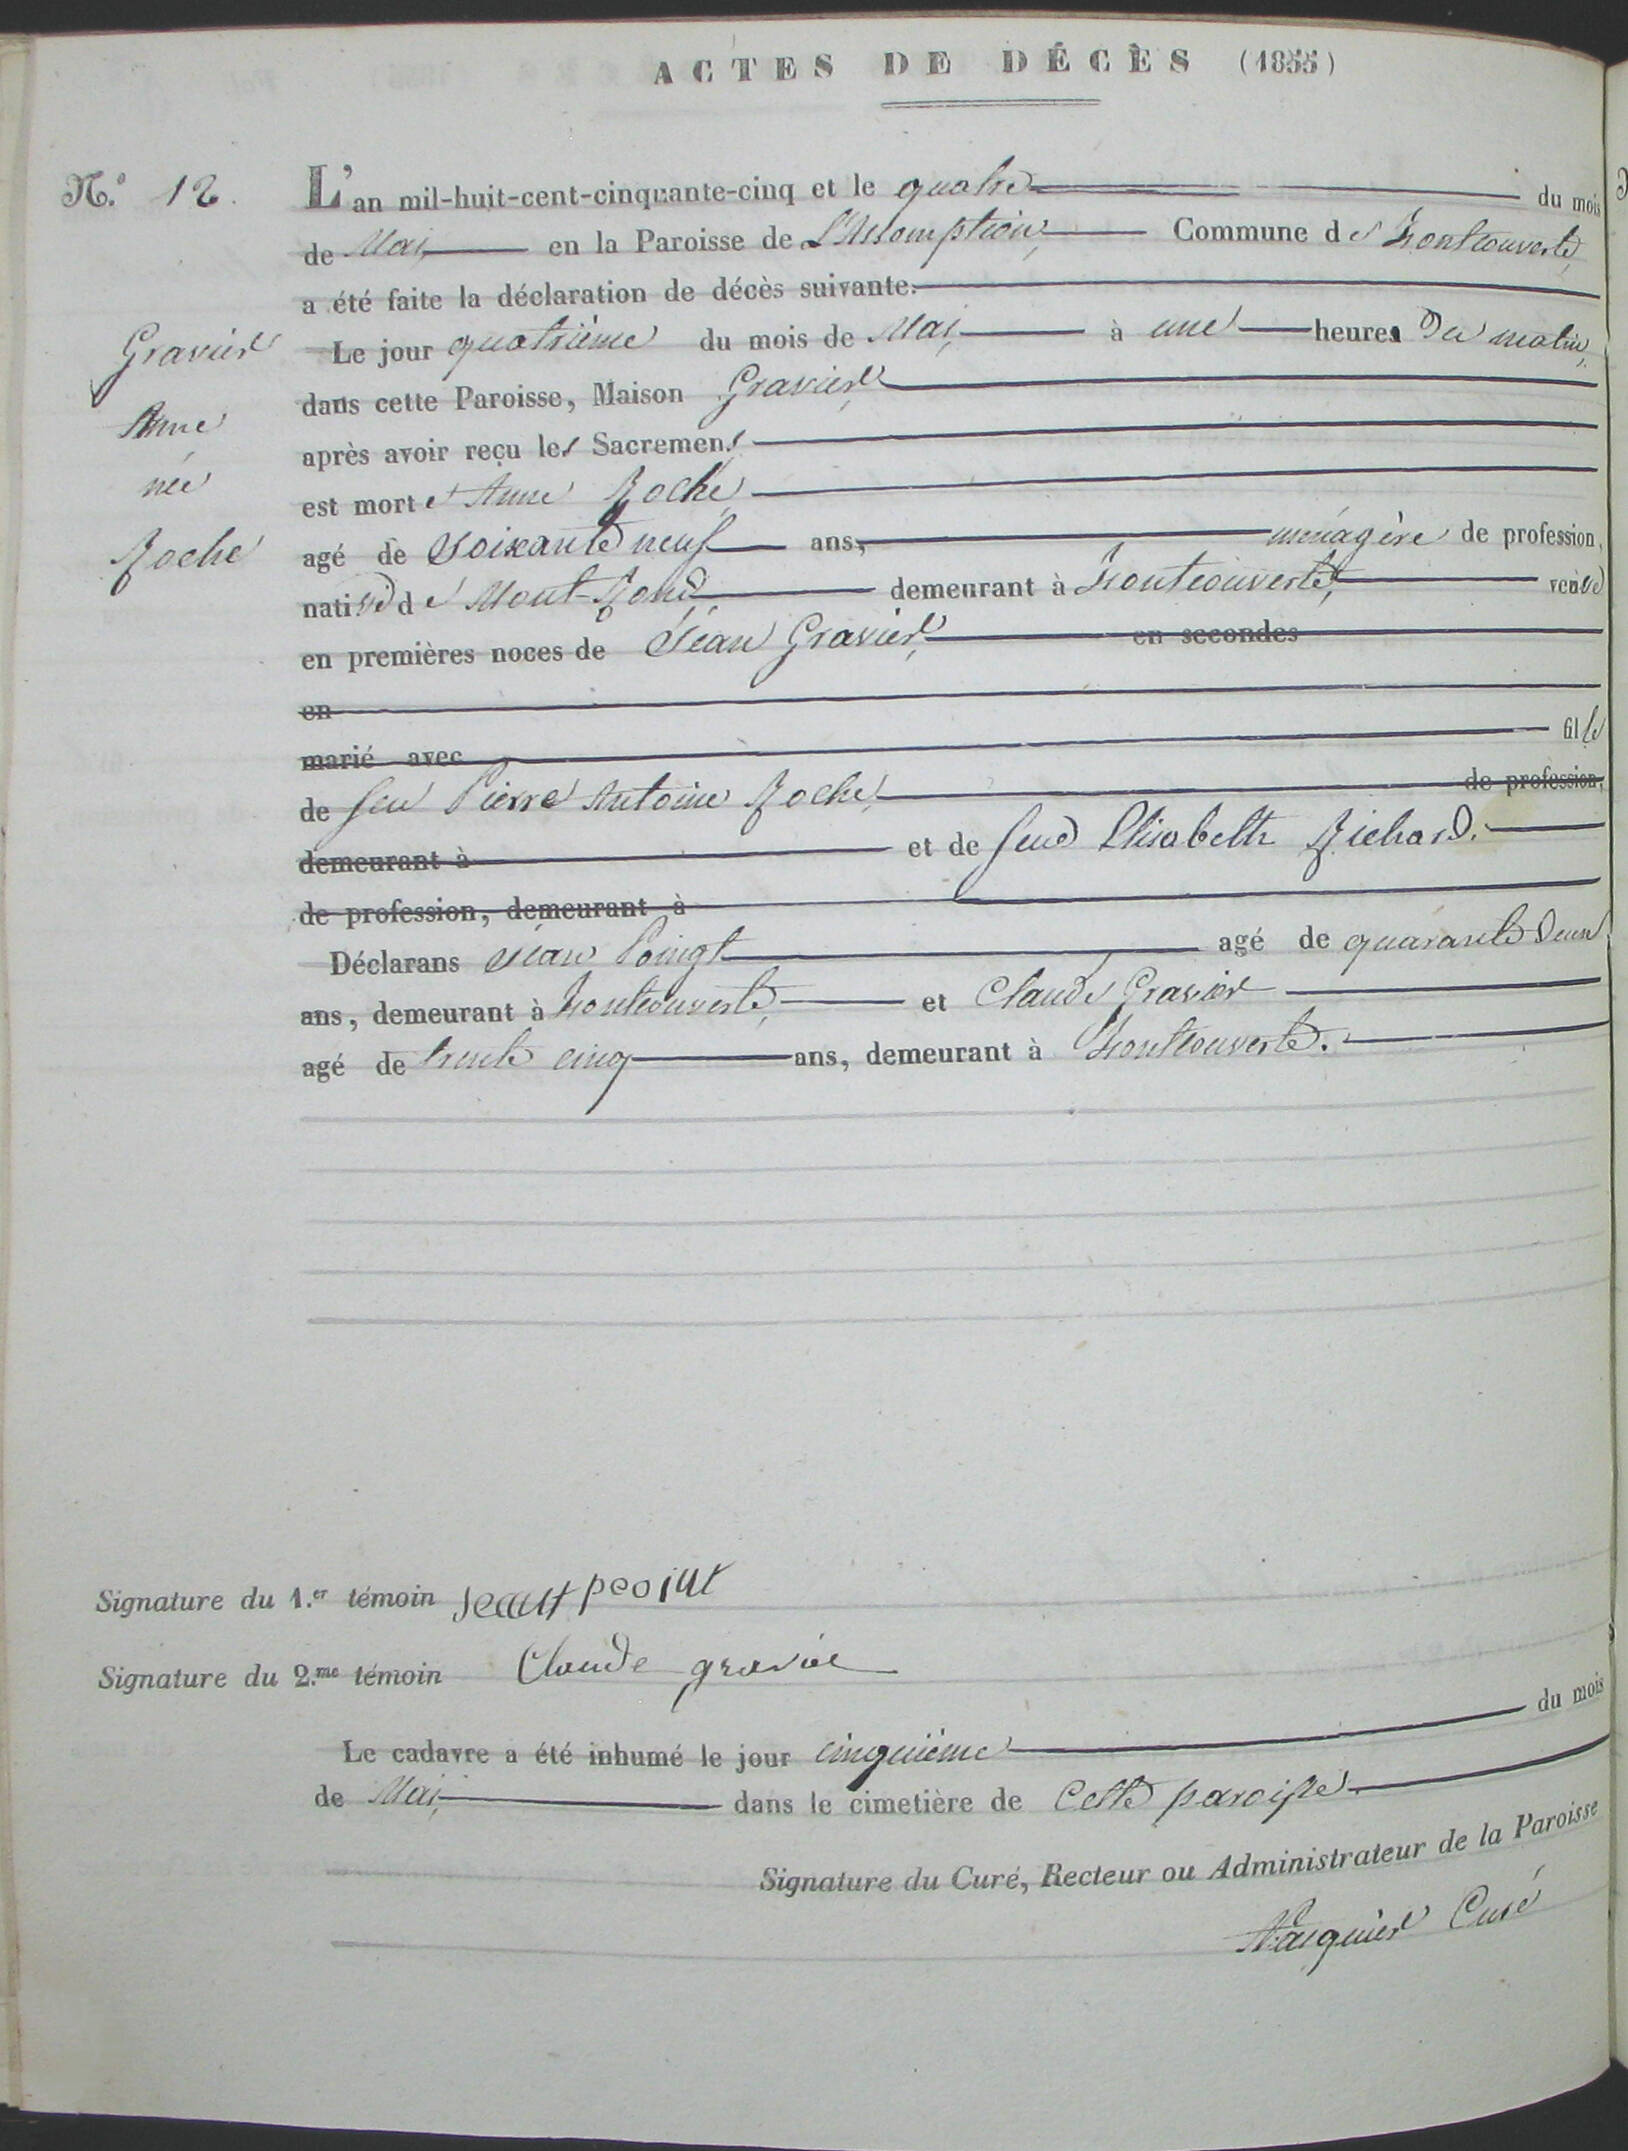 ACTES DE DÉCÈS (1855)
N.º 12.
L'an mil-huit-cent-cinquante-cinq et le quatre du mois
de Mai, en la Paroisse de L'Assomption, Commune de Montcouverte,
a été faite la déclaration de décès suivante.
Gravier
Anne
née
Roche
Le jour quatrième du mois de Mai, à une heures du matin,
dans cette Paroisse, Maison Gravier,
après avoir reçu les Sacremens
est morte Anne Roche,
agé de soixante neuf ans, ménagère de profession,
native de Mont-Rond, demeurant à Montcouverte, veuve
en premières noces de Jean Gravier, en secondes
en
marié avec fille
de feu Pierre Antoine Roche, de profession,
demeurant à et de feue Elisabeth Richard.
de profession, demeurant à
Déclarans Jean Poingt agé de quarante deux
ans, demeurant à Montcouverte, et Claude Gravier
agé de trente cinq ans, demeurant à Montcouverte.
Signature du 1.er témoin
Signature du 2.me témoin Claude gravie
Le cadavre a été inhumé le jour cinquième du mois
de Mai, dans le cimetière de cette paroisse.
Signature du Curé, Recteur ou Administrateur de la Paroisse
Curé